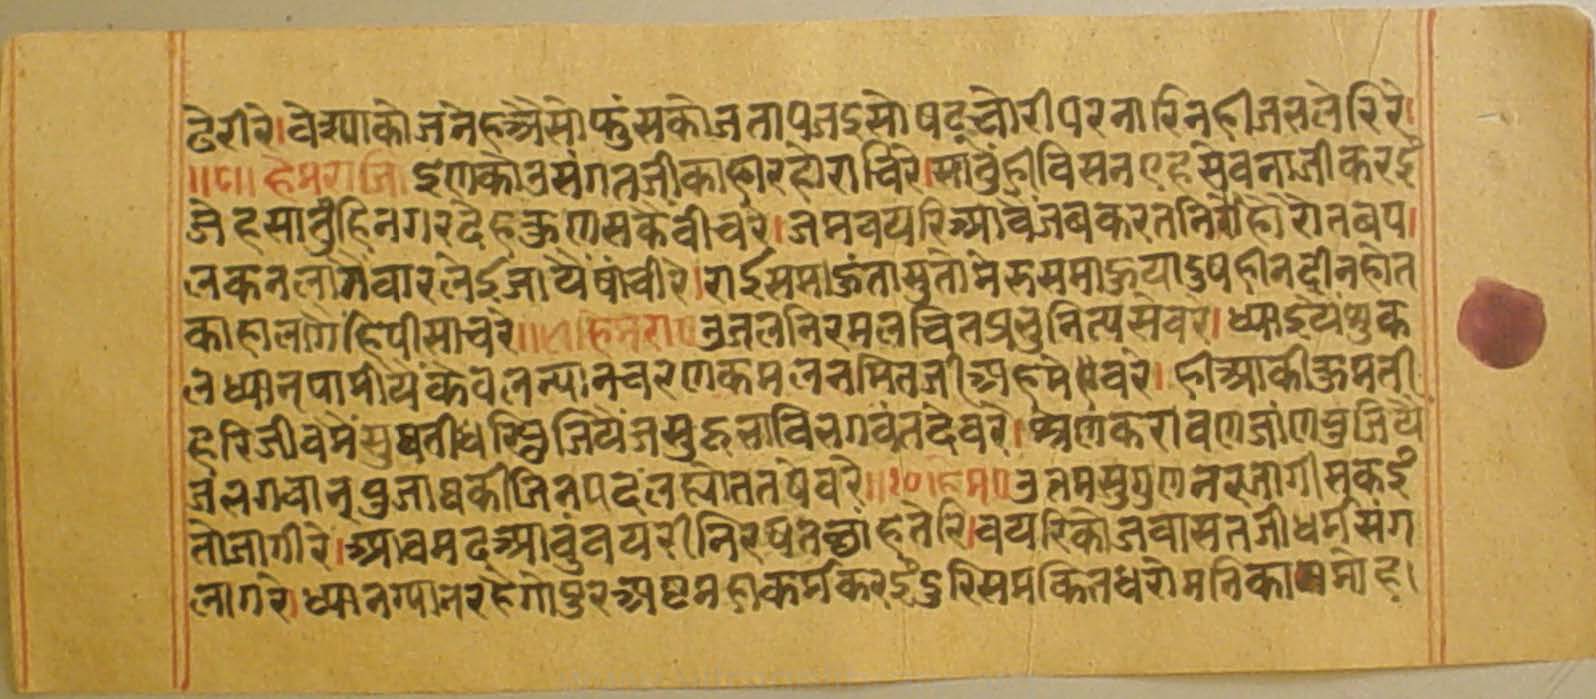 टेरीरे।वेश्याकोजनेहअैसोफुंसकोजतापुजइसोषटचोरीपरनारिनहीजललेरिरे।
॥८॥हेमराज॥इणकोउसंगतजीकाछारहोराचिरे।सातुंहीविसनएहसेवनाजीकरई
जेहसातुंहिनगरदेहऊणसकेवीचरे।जमवयरिआवेजबकरतनिरोहोरोतबप।
लकनलागेवारलेईजायेषांचीरे।राईसमाऊंतासुतोमेरुसमाऊयादुषहीनदीनहोत
काहालागेंहिपीसाचरे॥९॥हेमरा॰उजलनिरमलचितप्रभुनित्यसेवरे।ध्याइयेंशुक
लध्यानपामीयेंकेवलन्यानचरणकमलनमितजीअहमेवरे।हीआकीऊमती
हरिजीवमेंसुघतीधरिपुजियेंजसुहलाविभगवंतदेवरे।श्रणकरावणजांणपुजियें
जेभगवानपुजाधकीजिनपदलह्योततषेवरे॥१०॥हेम॰॥उतमसुगुणनरजागीसकइं
तोजागीरे।आवमदआवुंवयरीनिरषतछांहतेरि।वयरिकोजवासतजीधर्मसंग
लागरे।ध्यानग्यानरहेगोपुरअष्टमहाकर्मकरइंडुरिसमकितधरोमनिका॰मोह।